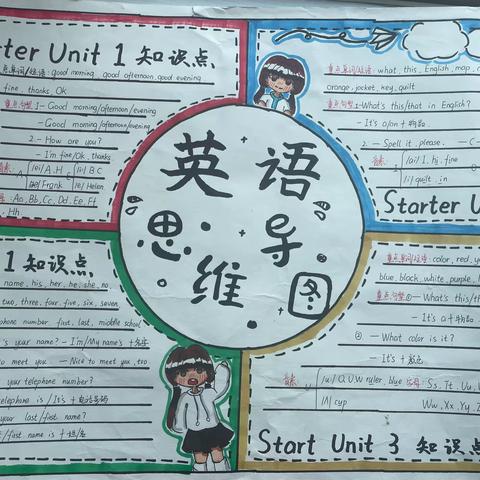 ter Unit 1 知识点
重点单词/短语: good morning, good afternoon, good evening
fine, thanks, Ok
重点句型 1- Good morning/afternoon/evening
- Good morning/afternoon/evening
2.- How are you?
- I'm fine/Ok, thanks
/ei/ A.H /i:/ B C
/æ/ Frank /e/ Helen
: Aa, Bb, Cc, Dd, Ee, Ff
Hh
重点单词/短语: what, this, English, map,
orange, jacket, key, quilt
重点句型: 1-What's this/that in English?
- It's a/an + 物品
2 - Spell it, please. - 
/ai/ I, hi, fine
/i/ quilt, in
Starter U
英语
思维
导图
1 知识点
name, his, her, he, she, no,
two, three, four, five, six, seven,
phone number first, last, middle school
's your name? - I'm/My name's +
to meet you - Nice to meet you, too
your telephone number?
telephone is / It's + 电话号码
your last/first name?
/first name is +
重点单词/短语: color, red, y
blue, black, white, purple,
重点句型 ① - What's this/th
- It's a + 物品
② - What color is it?
- It's + 颜色
/u:/ Q U W ruler, blue Ss, Tt, Uu,
/ʌ/ cup Ww, Xx, Yy, Z
Start Unit 3 知识点